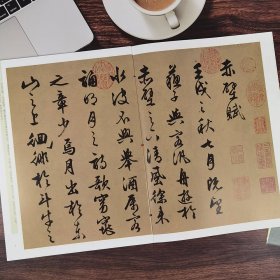 赤壁賦
壬戌之秋七月既望
蘇子與客汎舟遊於
赤壁之下清風徐来
水波不興舉酒屬客
誦明月之詩歌窈窕
之章少焉月出於東
山之上徘徊於斗牛之